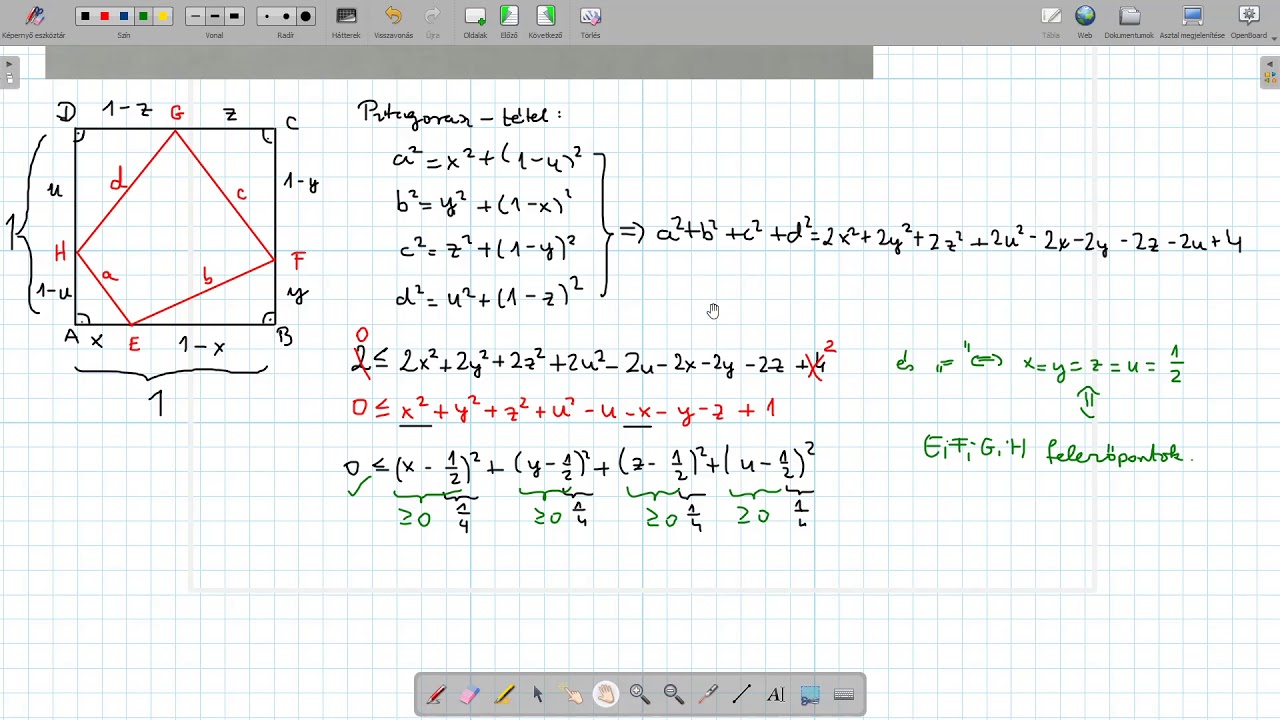 Képernyő eszköztár Szín Radír Hátterek Visszavonás Újra Oldalak Előző Következő Törlés Tábla Web Dokumentumok Asztal megjelenítése OpenBoard
D 1-z G z C
u d c 1-y
1
H a b F
1-u y
A x E 1-x B
1
Pitagorasz-tétel:
a² = x² + (1-u)²
b² = y² + (1-x)²
c² = z² + (1-y)²
d² = u² + (1-z)²
=> a² + b² + c² + d² = 2x² + 2y² + 2z² + 2u² - 2x - 2y - 2z - 2u + 4
0 2
2 ≤ 2x² + 2y² + 2z² + 2u² - 2u - 2x - 2y - 2z + 4
0 ≤ x² + y² + z² + u² - u - x - y - z + 1
0 ≤ (x - 1/2)² + (y - 1/2)² + (z - 1/2)² + (u - 1/2)²
✓ ≥0 1/4 ≥0 1/4 ≥0 1/4 ≥0 1/4
és „=" <=> x = y = z = u = 1/2
⇕
E; F; G; H felezőpontok.
AI